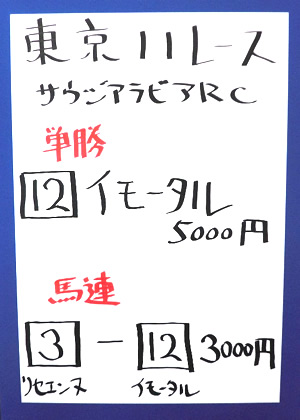 東京11レース
サウジアラビアRC
単勝
12 イモータル
5000円
馬連
3 - 12 3000円
リセエンヌ イモータル